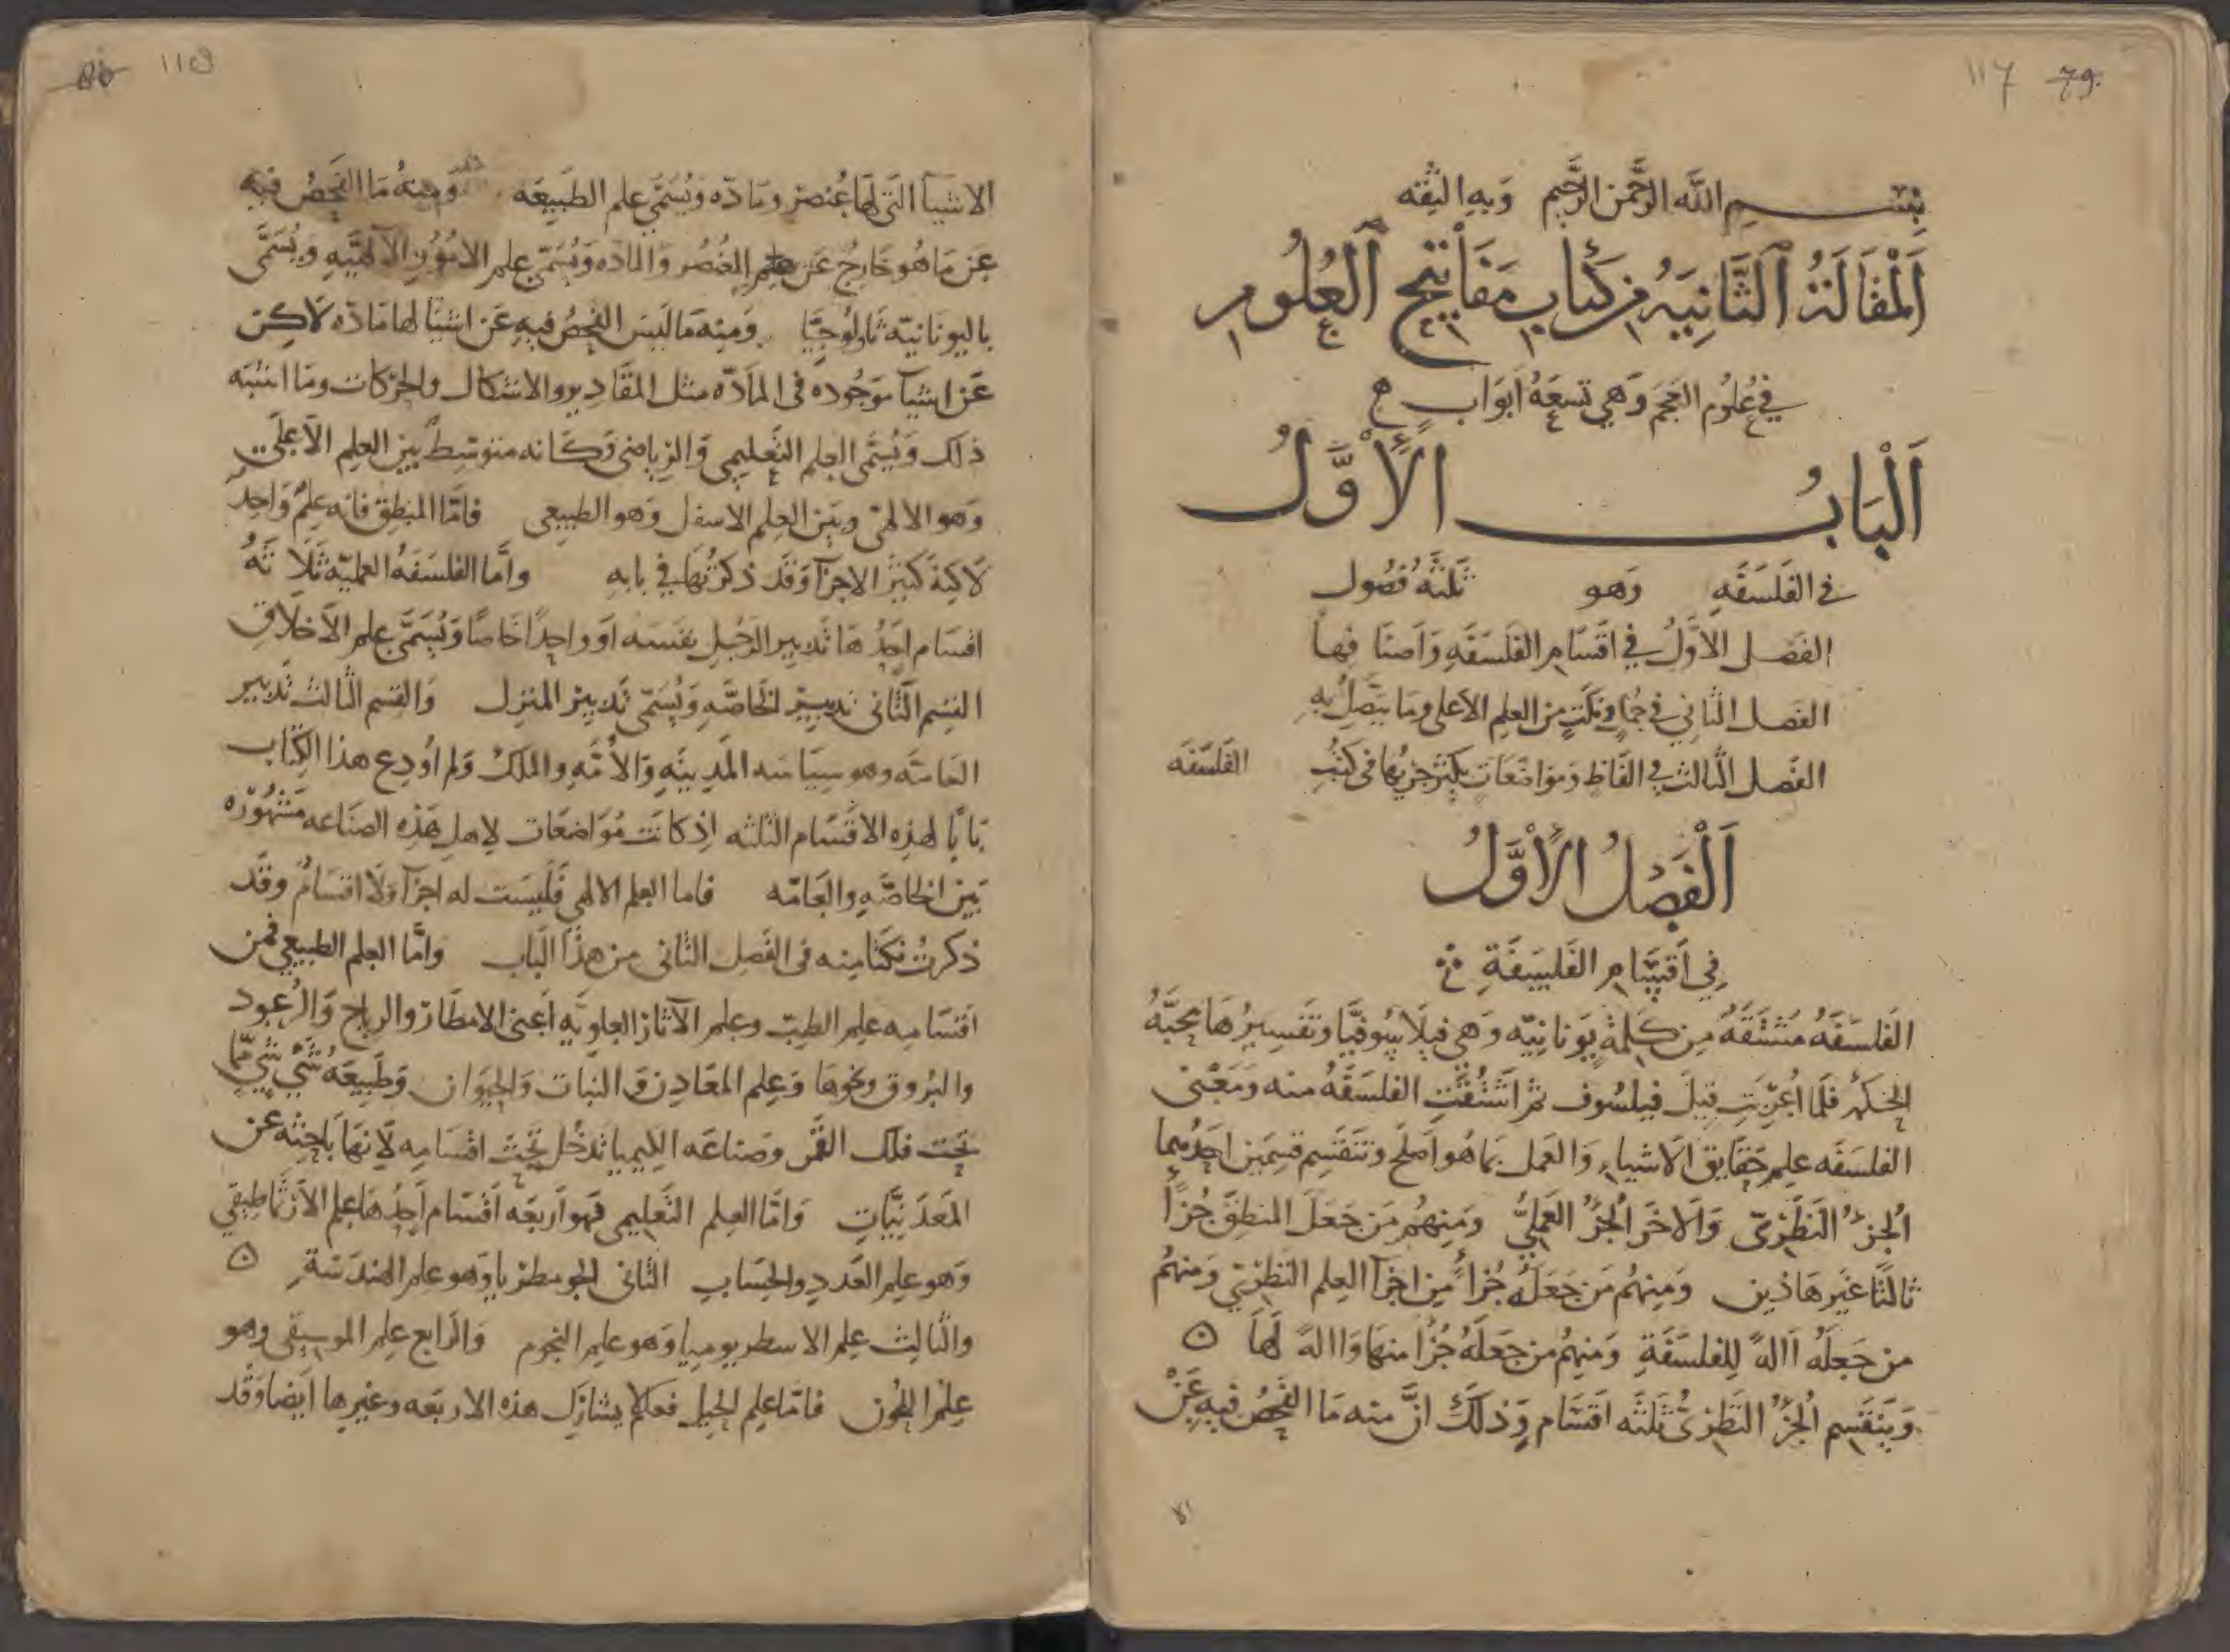 117 79
بِسْـــمِ اللَّه الرَّحْمن الرَّحِيم وَبِهِ الثِقَه
اَلْمَقَالَةُ اَلثَّانِيَهُ مِنْ كِتَابِ مَفَاتِيْحِ اَلْعُلُومِ
فِي عُلُومِ العَجَم وَهِي تِسعَهُ اَبوَابٍ
اَلْبَابُ الأَوَّلُ
في الفَلسَفَهِ وَهو ثَلثَهُ فصُول
الفَصل الاوَّلُ في اَقسَامِ الفَلسَفَهِ وَاَصنَا فِهاَ
الفَصل الثَانِي في جُمَلٍ وَنُكَتٍ مِنَ العِلمِ الاَعلى وَمَا يَتَّصِلُ بِهِ
الفَصل الثالث في الفَاظٍ وَمَوَاضَعَاتٍ يَكثُر جَريُهَا في كُتُبِ الفَلسَفَه
اَلْفَصْلُ الأَوَّلُ
فِي اَقسَامِ الفَلسَفَةِ
الفَلسَفَهُ مُشتَقَّهُ مِن كَلِمةٍ يُونانِيّه وَهي فيلاَسُوفِيَّا وَتَفسِيرُهَا مَحَبَّهُ
الحِكمَهِ فَلَما اُعْرِبَتِ قِيلَ فَيلسُوف ثمّ اشتُقَّتِ الفلسَفَهُ منه وَمَعْنى
الفلسَفَه علِم حَقَايق الاَشياءِ وَالعَمل بمَا هُو اَصلَحُ وَتَنقَسِم قِسمَينِ احَدُهما
الجزءُ النَظَرىّ وَالاخَر الجزُء العَمَليُّ وَمِنهُم مَن جَعَلَ المنطِقَ جُزءاً
ثالثًا غَيَر هَاذَين وَمِنهُم مَن جَعَلَهُ جُزءاً مِن اجزَآ العِلم النَظَرىّ وَمِنهُم
مَن جَعَلَه اَالهً لِلفلسَفَةِ وَمِنهُم من جَعَلَهُ جُزءا منهَا وَاالهً لَهَا ه
وَيَنقَسِم الجزءُ النَظَرىُّ ثَلثَه اقسَام وَذلَكَ اَنَّ منه مَا الفَحصُ فيهِ عَنْ
118 80
الاشيَآ الَتى لهَا عُنصر وَمَادّه وَيُسَمَّي علم الطَبِيعَه وَمِنهُ مَا الفَحصُ فيِهِ
عَن مَا هُو خَارجٌ عَن العُنصُر وَالمادّه وَيُسَمّى علم الامُوُرِ الاَلهِيَّهِ وَيُسَمَّى
باليونَانيّه ثَاولُوجِيَّا وَمِنه مَا لَيسَ الفحصُ فيهِ عَن اشيَا لها مَادّه لاَكِن
عَن اشيآ مَوجُوده في المَادّه مثل المقَادِير والاشكال والحركَات وَمَا اشبَه
ذلك وَيُسَمّى العِلم التَعليمي وَالرياضى وَكَانه متوَسِطٌ بَين العِلم الاَعلي
وَهو الالهىّ وبَين العِلم الاسفل وَهو الطبيعي فامَّا المنطِق فانه علمٌ وَاحِدٌ
لاَكِنهَ كَثيرُ الاجزآ وَقَد ذكرتُهَا في بابِه وامَّا الفلسَفَهُ العمليّه ثَلاَ ثَهُ
اقسَام احَدُ هَا تَدبِير الرَجُلِ نفسَه اَو واحِدًا خَاصّا وَيُسَمَّى علم الاَخلاَقِ
القِسِم الثَّانى تدبِيرُ الخَاصَّهِ وَيُسَمّى تَدبيرُ المنزِل وَالقِسم الثَالث تَدبِير
العَامَّه وهو سِيَاسَه المَدِينَهِ وَالاُمَّهِ وَالملك وَلم اُودِع هذا الكتَاب
بَابًا لهذِه الاقسَام الثلثه اِذ كانَت مُوَاضعَات لاِهل هَذِه الصنَاعَه مَشهُورَه
بَين الخَاصَّهِ والعَامّه فاما العِلم الالهي فَلَيسَت له اجزآ وَلا اقسَامُ وقد
ذكرتُ نكَتا مِنه في الفَصل الثانى من هذَا البَاب وامَّا العِلم الطبيعي فمن
اقسَامِه عِلم الطِب وعِلم الآثار العلوِيَّهِ اَعنى الامطَار والرياح وَالرُعود
والبُروق ونحوهَا وَعِلم المعَادِن وَ النَبات وَالحيَوَان وَطبيعَهُ شَي شَي ممّا
تحت فلك القَمر وصنَاعَه الكيميا تَدخُل تحت اقسَامِهِ لاَنهَا باحِثه عَن
المَعدَنِيَّاتِ وَامّا العِلم التَعليمي فَهو اَربَعَه اَقسَام اَحدُ هَا عِلم الاَرثمَاطِيقي
وَهو عِلم العَددِ والحِسَاب الثانى الجومطريا وَهو علِم الهندَسَة ه
والثالث عِلم الاسطريوميا وَهو علم النجُوم وَالرَابع عِلم الموسيقى وهو
عِلمُ اللحُون فامّا علِم الحِيل فعلم يشارك هذه الاربَعه وغيرها اَيضا وَقَد